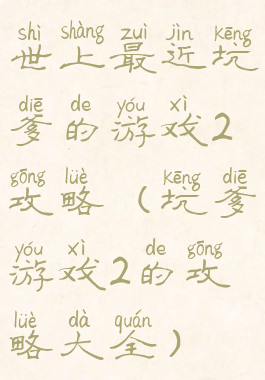 shì shàng zuì jìn kēng
世上最近坑
diē de yóu xì
爹的游戏2
gōng lüè kēng diē
攻略（坑爹
yóu xì de gōng
游戏2的攻
lüè dà quán
略大全）